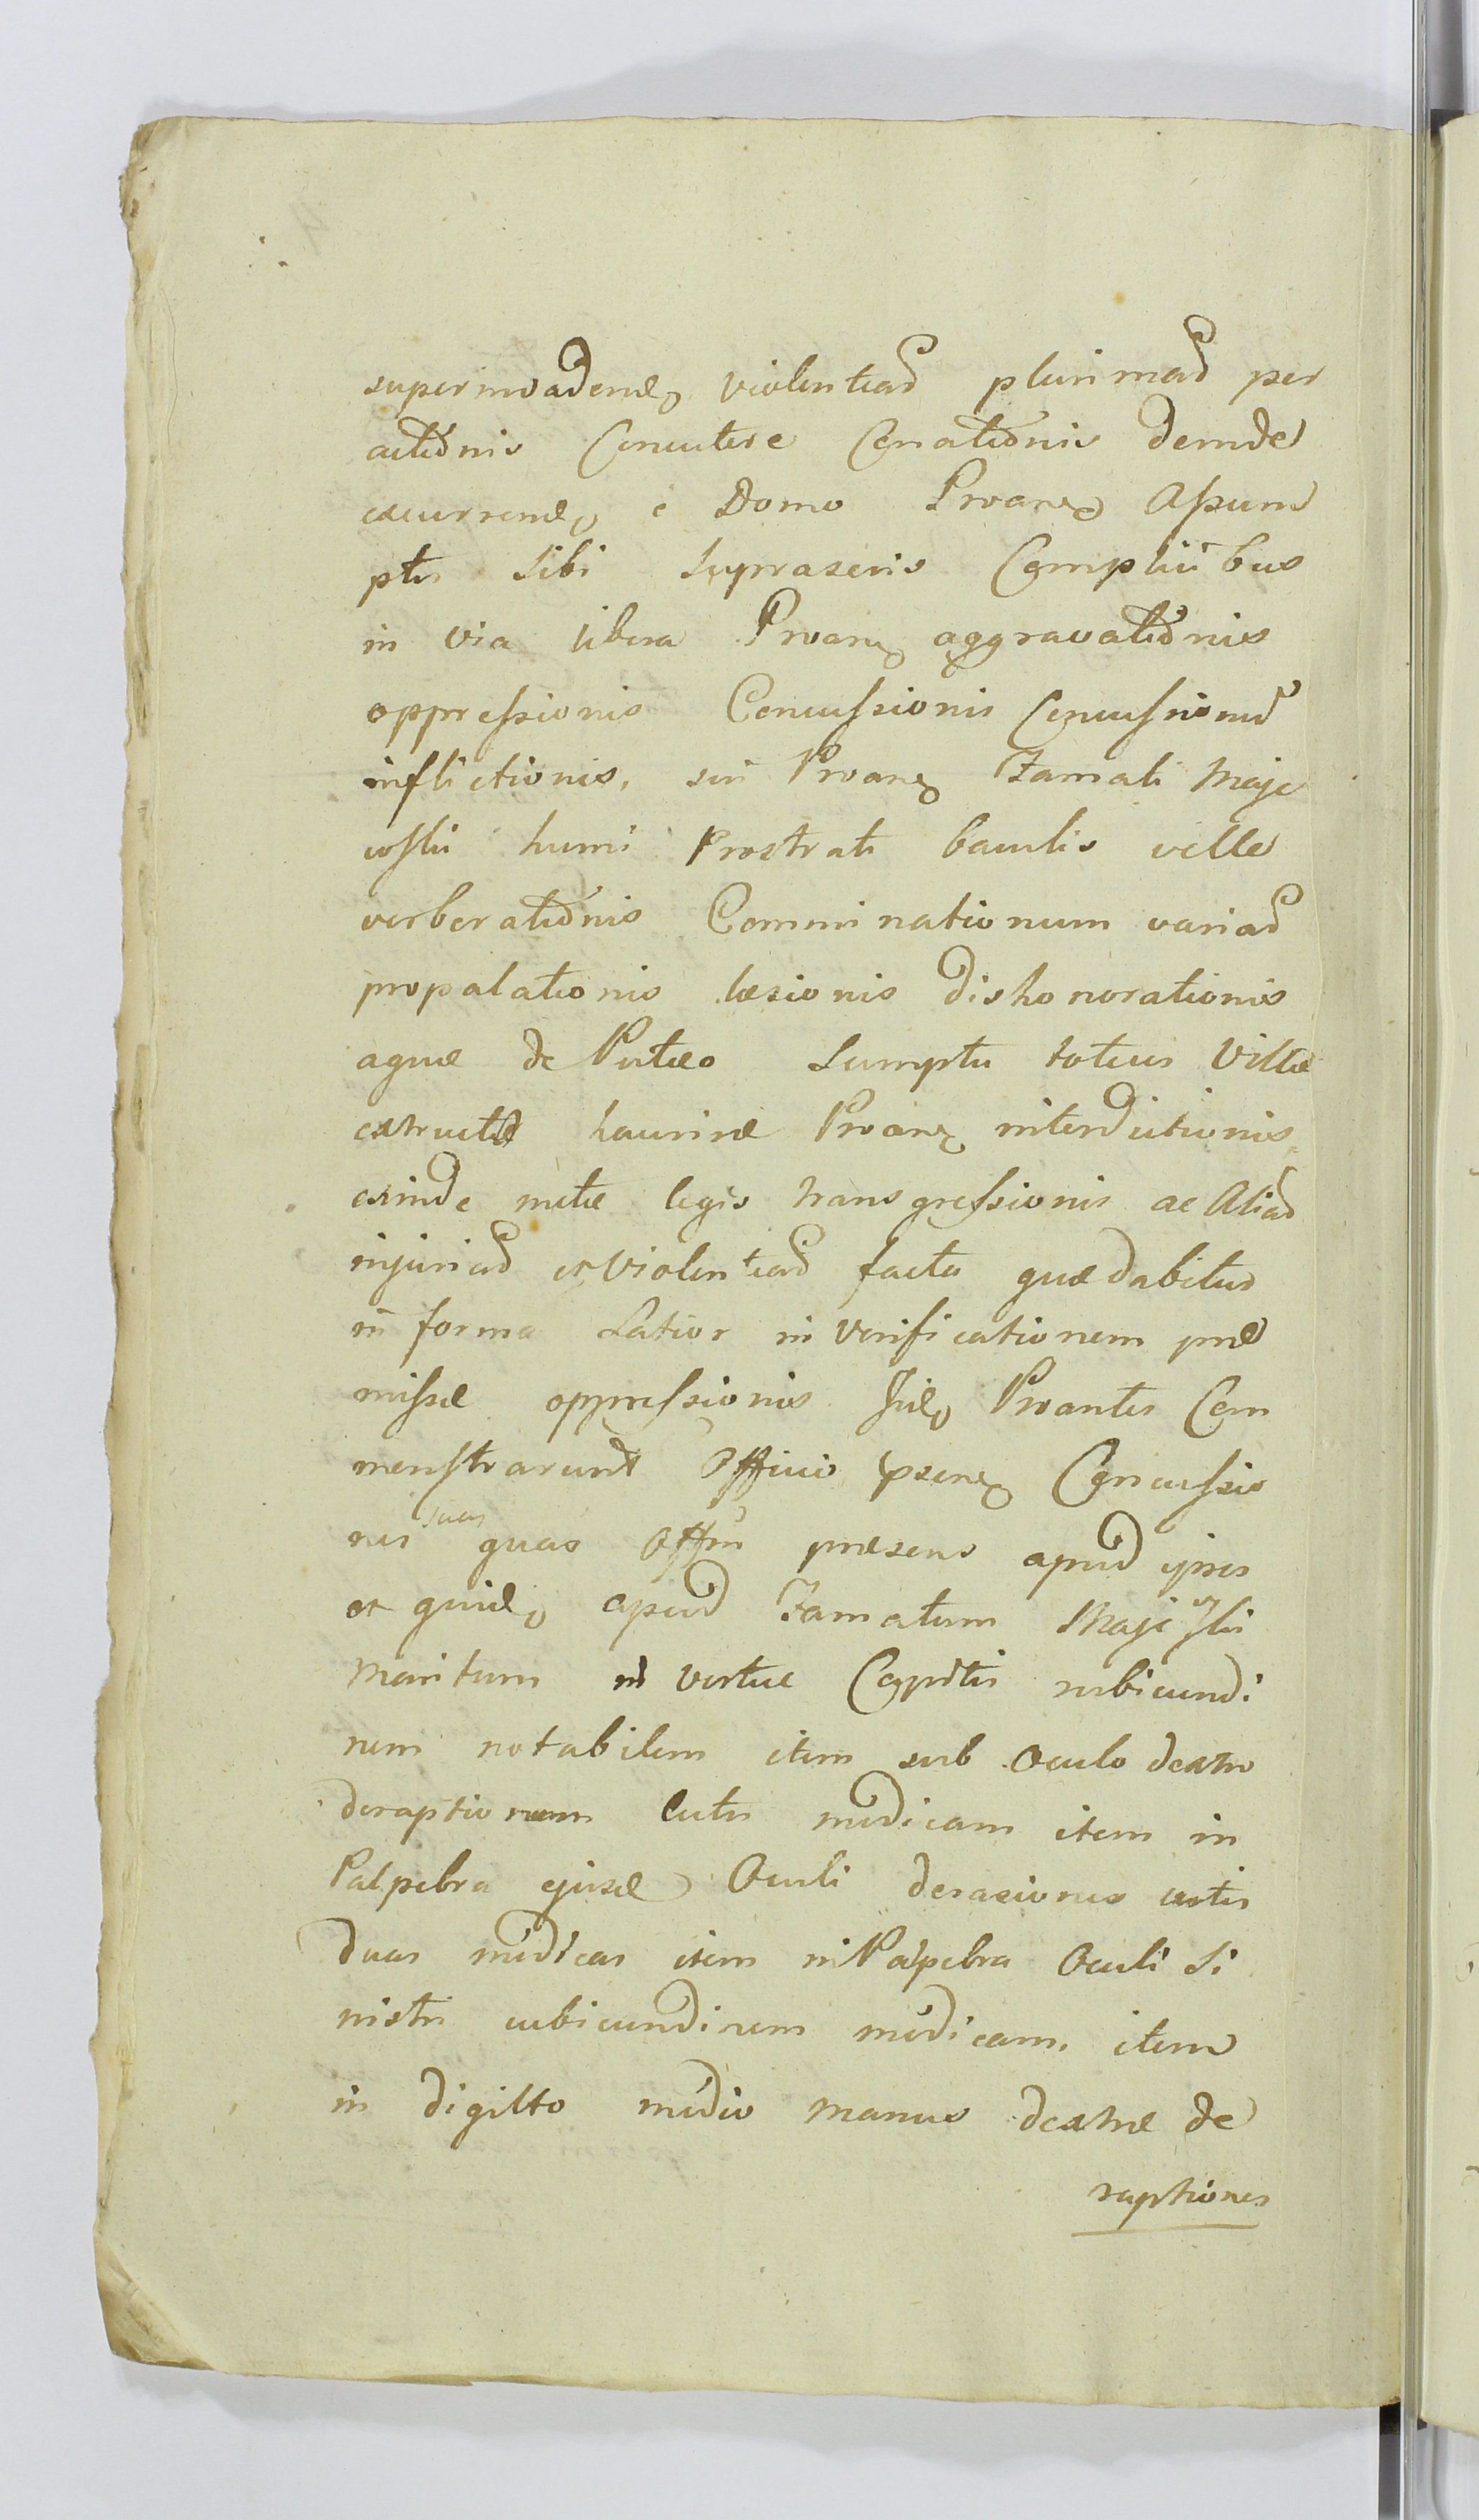 superinvadend, violentiar plurimar per
actionis Concutere Conationis deinde
excurrend, e Domo Proan, Assum
ptis Sibi supraseris Complicibus
in via libera Proan, aggravationis
oppressionis Concussionis Concussionu
inflictionis, seu Proan, Zamati Maje
wski humi Prostrati baculis velle
verberationis Comminationum variar
propalationis læsionis dishonorationis
aquæ de Puteo Sumptu totius Villæ
extructæ haurire Proan, interdictionis,
exinde metæ legis transgressionis ac Aliar
injuriar et violentiar facta quæ dabitur
in forma Latior in Verificationem præ
missæ oppressionis suæ, Proantes Com
monstrarunt Officio psen, Concussio
nes suas quas Offm præsens apud ipsos
et quid, apud Zamatum Majewski
Maritum in vertice Capitis rubicundi
nem notabilem item sub Oculo dextro
deraptionem Cutis modicam item in
Palpebra ejusd Oculi derasiones cutis
duas modicas item in Palpebra Oculi Si
nistri rubicundinem modicam, item
in digitto medio manus dextræ de
raptiones